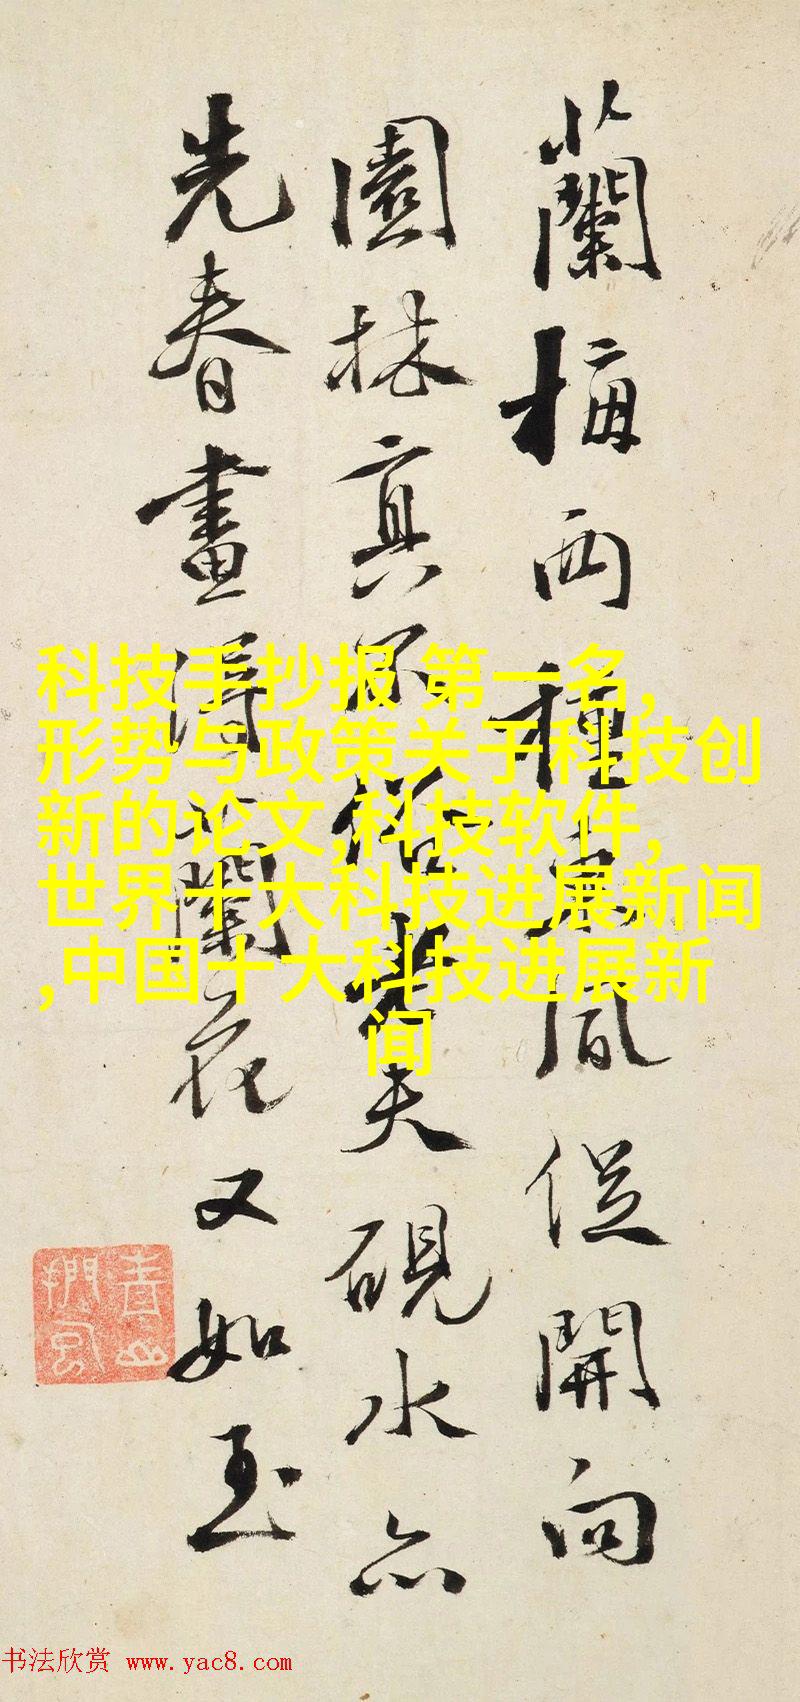 蘭梅两種東風促開向
園林真不俗老夫硯水亦
先春畫得蘭花又如玉
科技手抄报 第一名,
形势与政策关于科技创
新的论文,科技软件,
世界十大科技进展新闻
,中国十大科技进展新
闻
书法欣赏 www.yac8.com